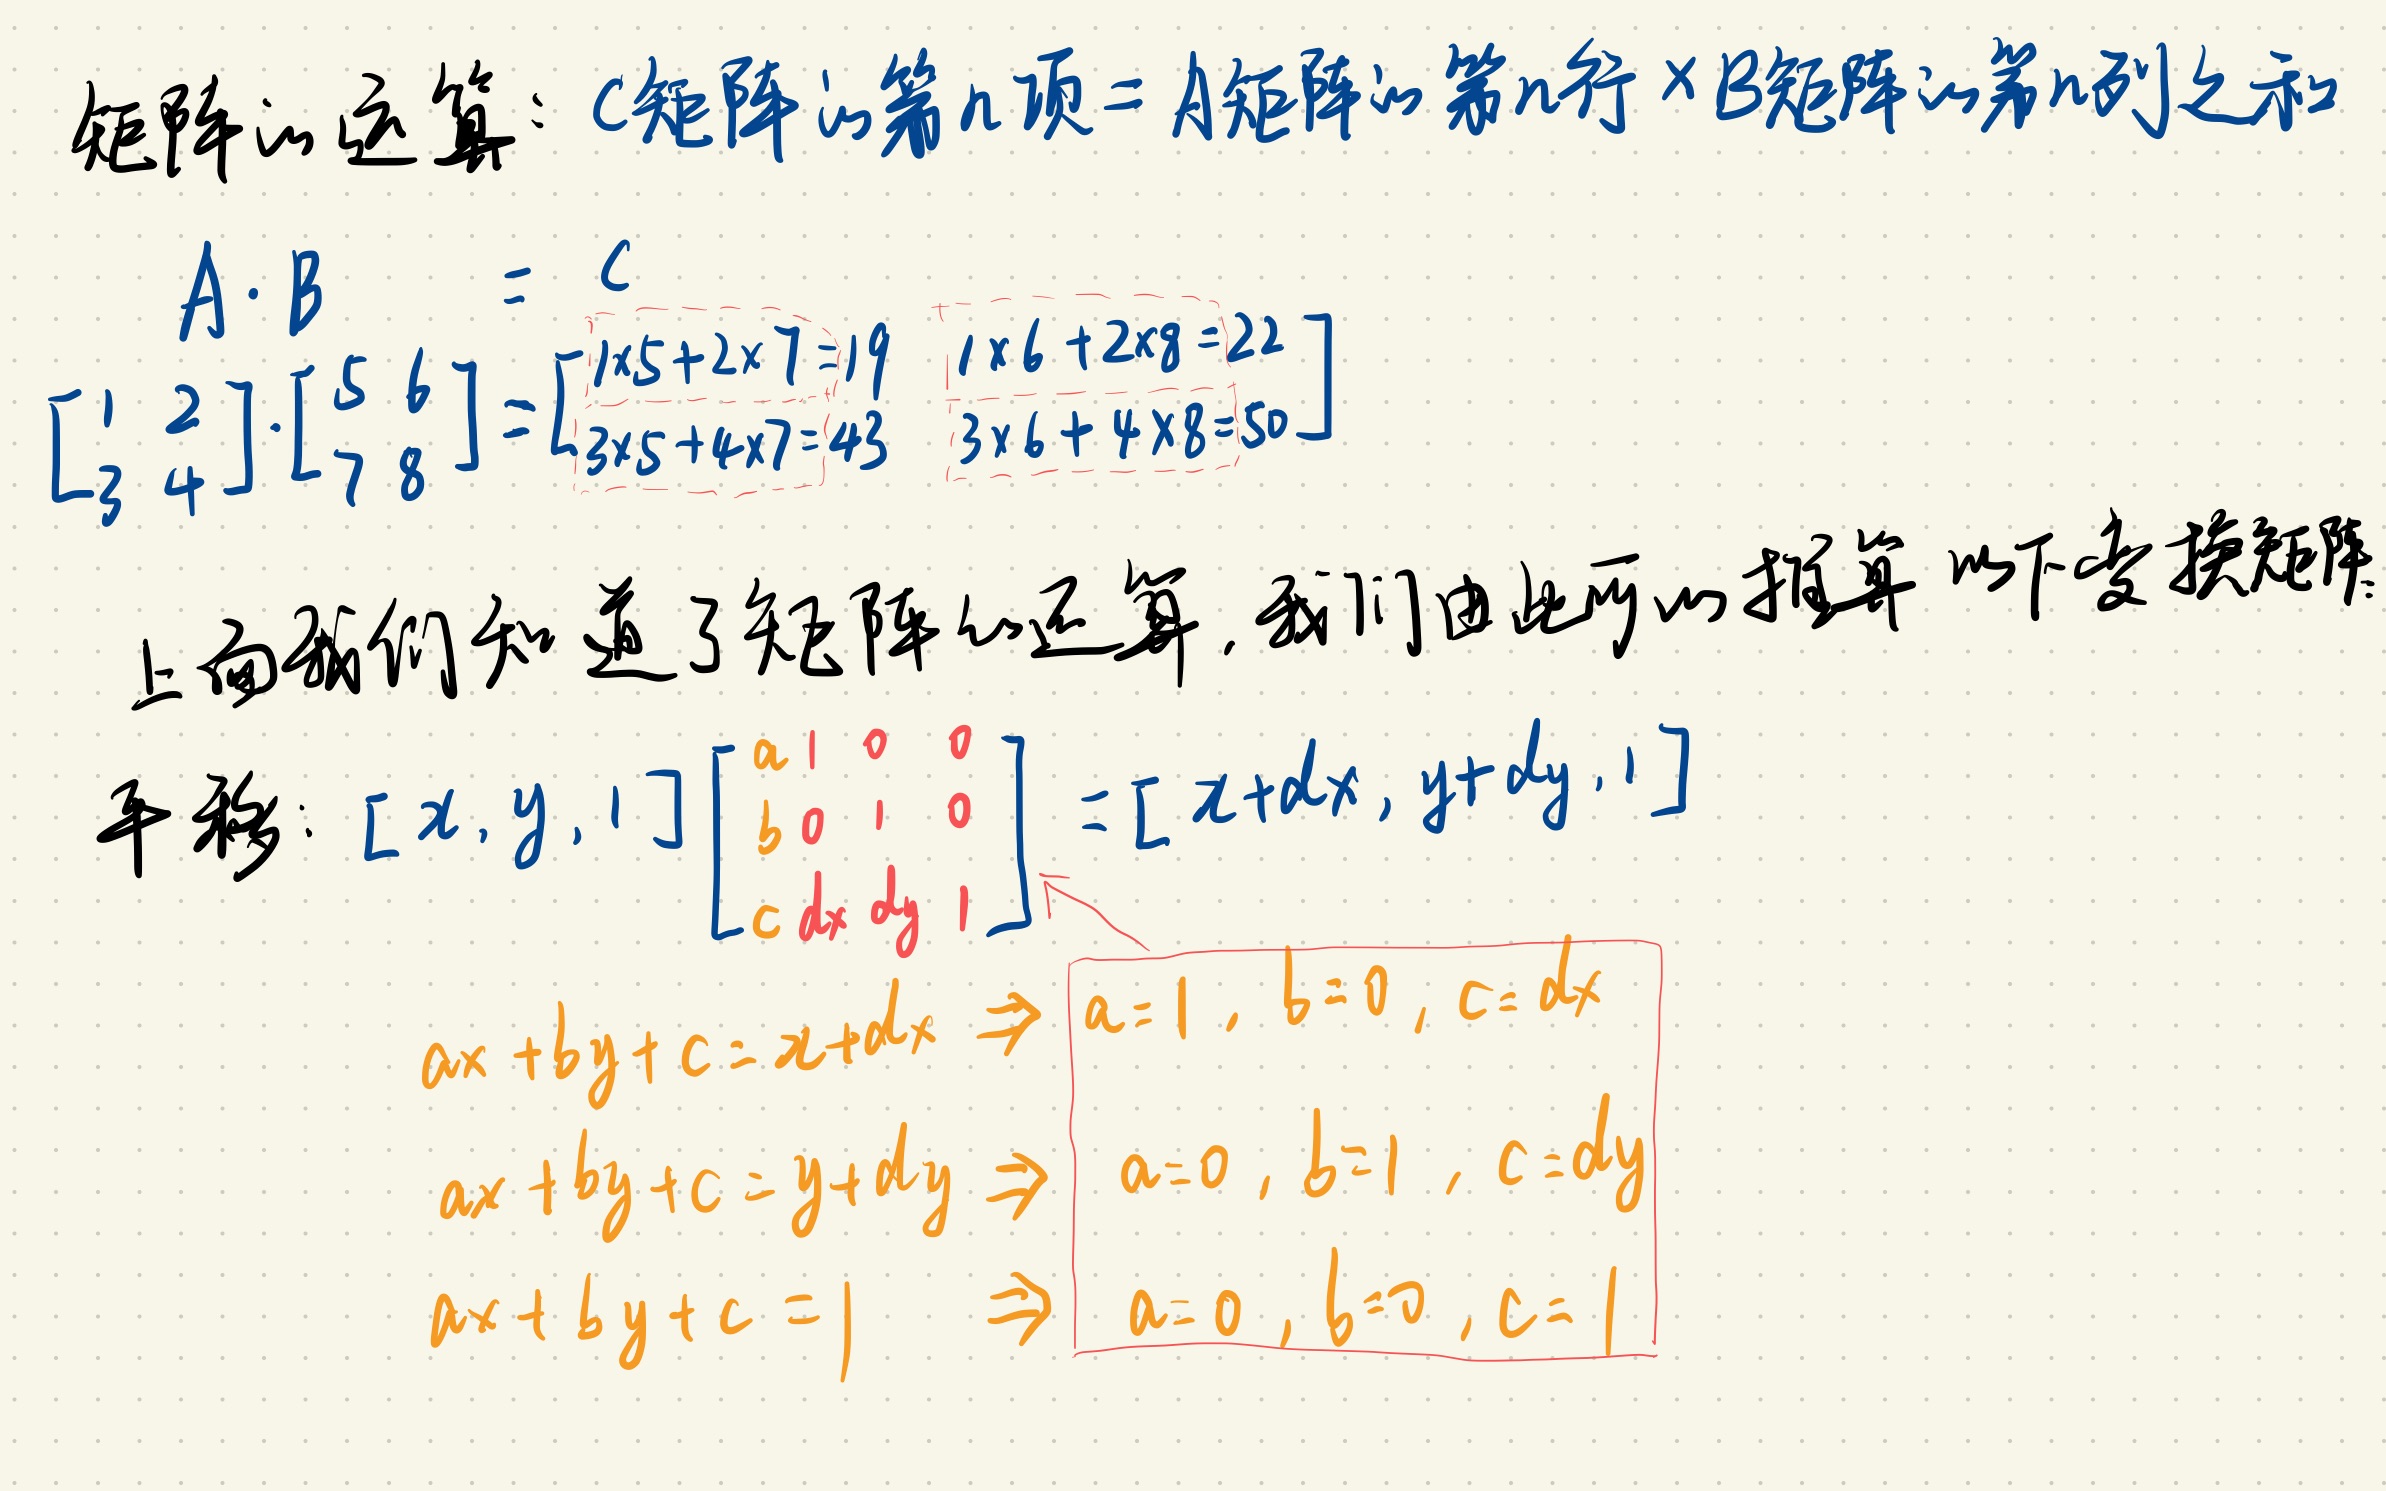 矩阵的运算：C矩阵的第n项=A矩阵的第n行×B矩阵的第n列之和
A·B = C
[1 2 ]·[5 6 ]=[1×5+2×7=19 1×6+2×8=22 ]
[3 4 ] [7 8 ] [3×5+4×7=43 3×6+4×8=50 ]
上面我们知道了矩阵的运算,我们由此可以推算以下变换矩阵:
平移: [x, y, 1] [a 1 0 0 ] =[x+dx, y+dy, 1]
b 0 1 0
c dx dy 1
ax+by+c=x+dx ⇒ a=1, b=0, c=dx
ax+by+c=y+dy ⇒ a=0, b=1, c=dy
ax+by+c=1 ⇒ a=0, b=0, c=1